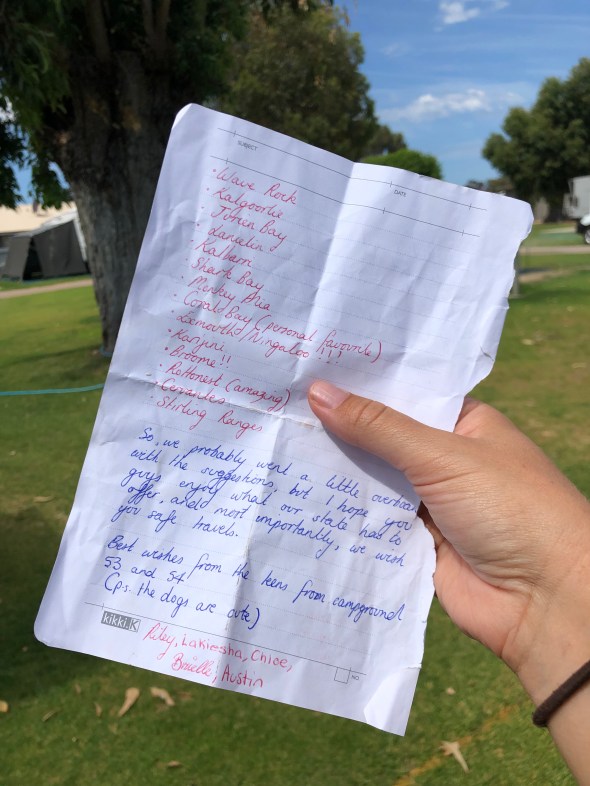 SUBJECT
DATE
· Wave Rock
· Kalgoorlie
· Jurien Bay
· Lancelin
· Kalbarri
· Shark Bay
· Monkey Mia
· Corald Bay (personal favourite)
· Exmouth/Ningaloo !!!
· Karjini
· Broome!!
· Rottonest (amazing)
· Cervantes
· Stirling Ranges
So, we probably went a little overboa
with the suggestions, but I hope you
guys enjoy what our state has to
offer, and most importantly, we wish
you safe travels.
Best wishes from the teens from campground
53 and 54
(p.s. the dogs are cute)
kikki.K
NO
Riley, Lakiesha, Chloe,
Brielle, Austin